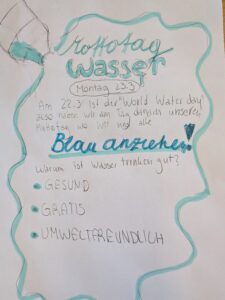 Mottotag
Wasser
Montag 23.3
Am 22.3 ist der "World Water day"
also wir am Tag danach unseren
Mottotag wo wir uns alle
Blau anziehen!
Warum ist Wasser trinken gut?
GESUND
GRATIS
UMWELTFREUNDLICH